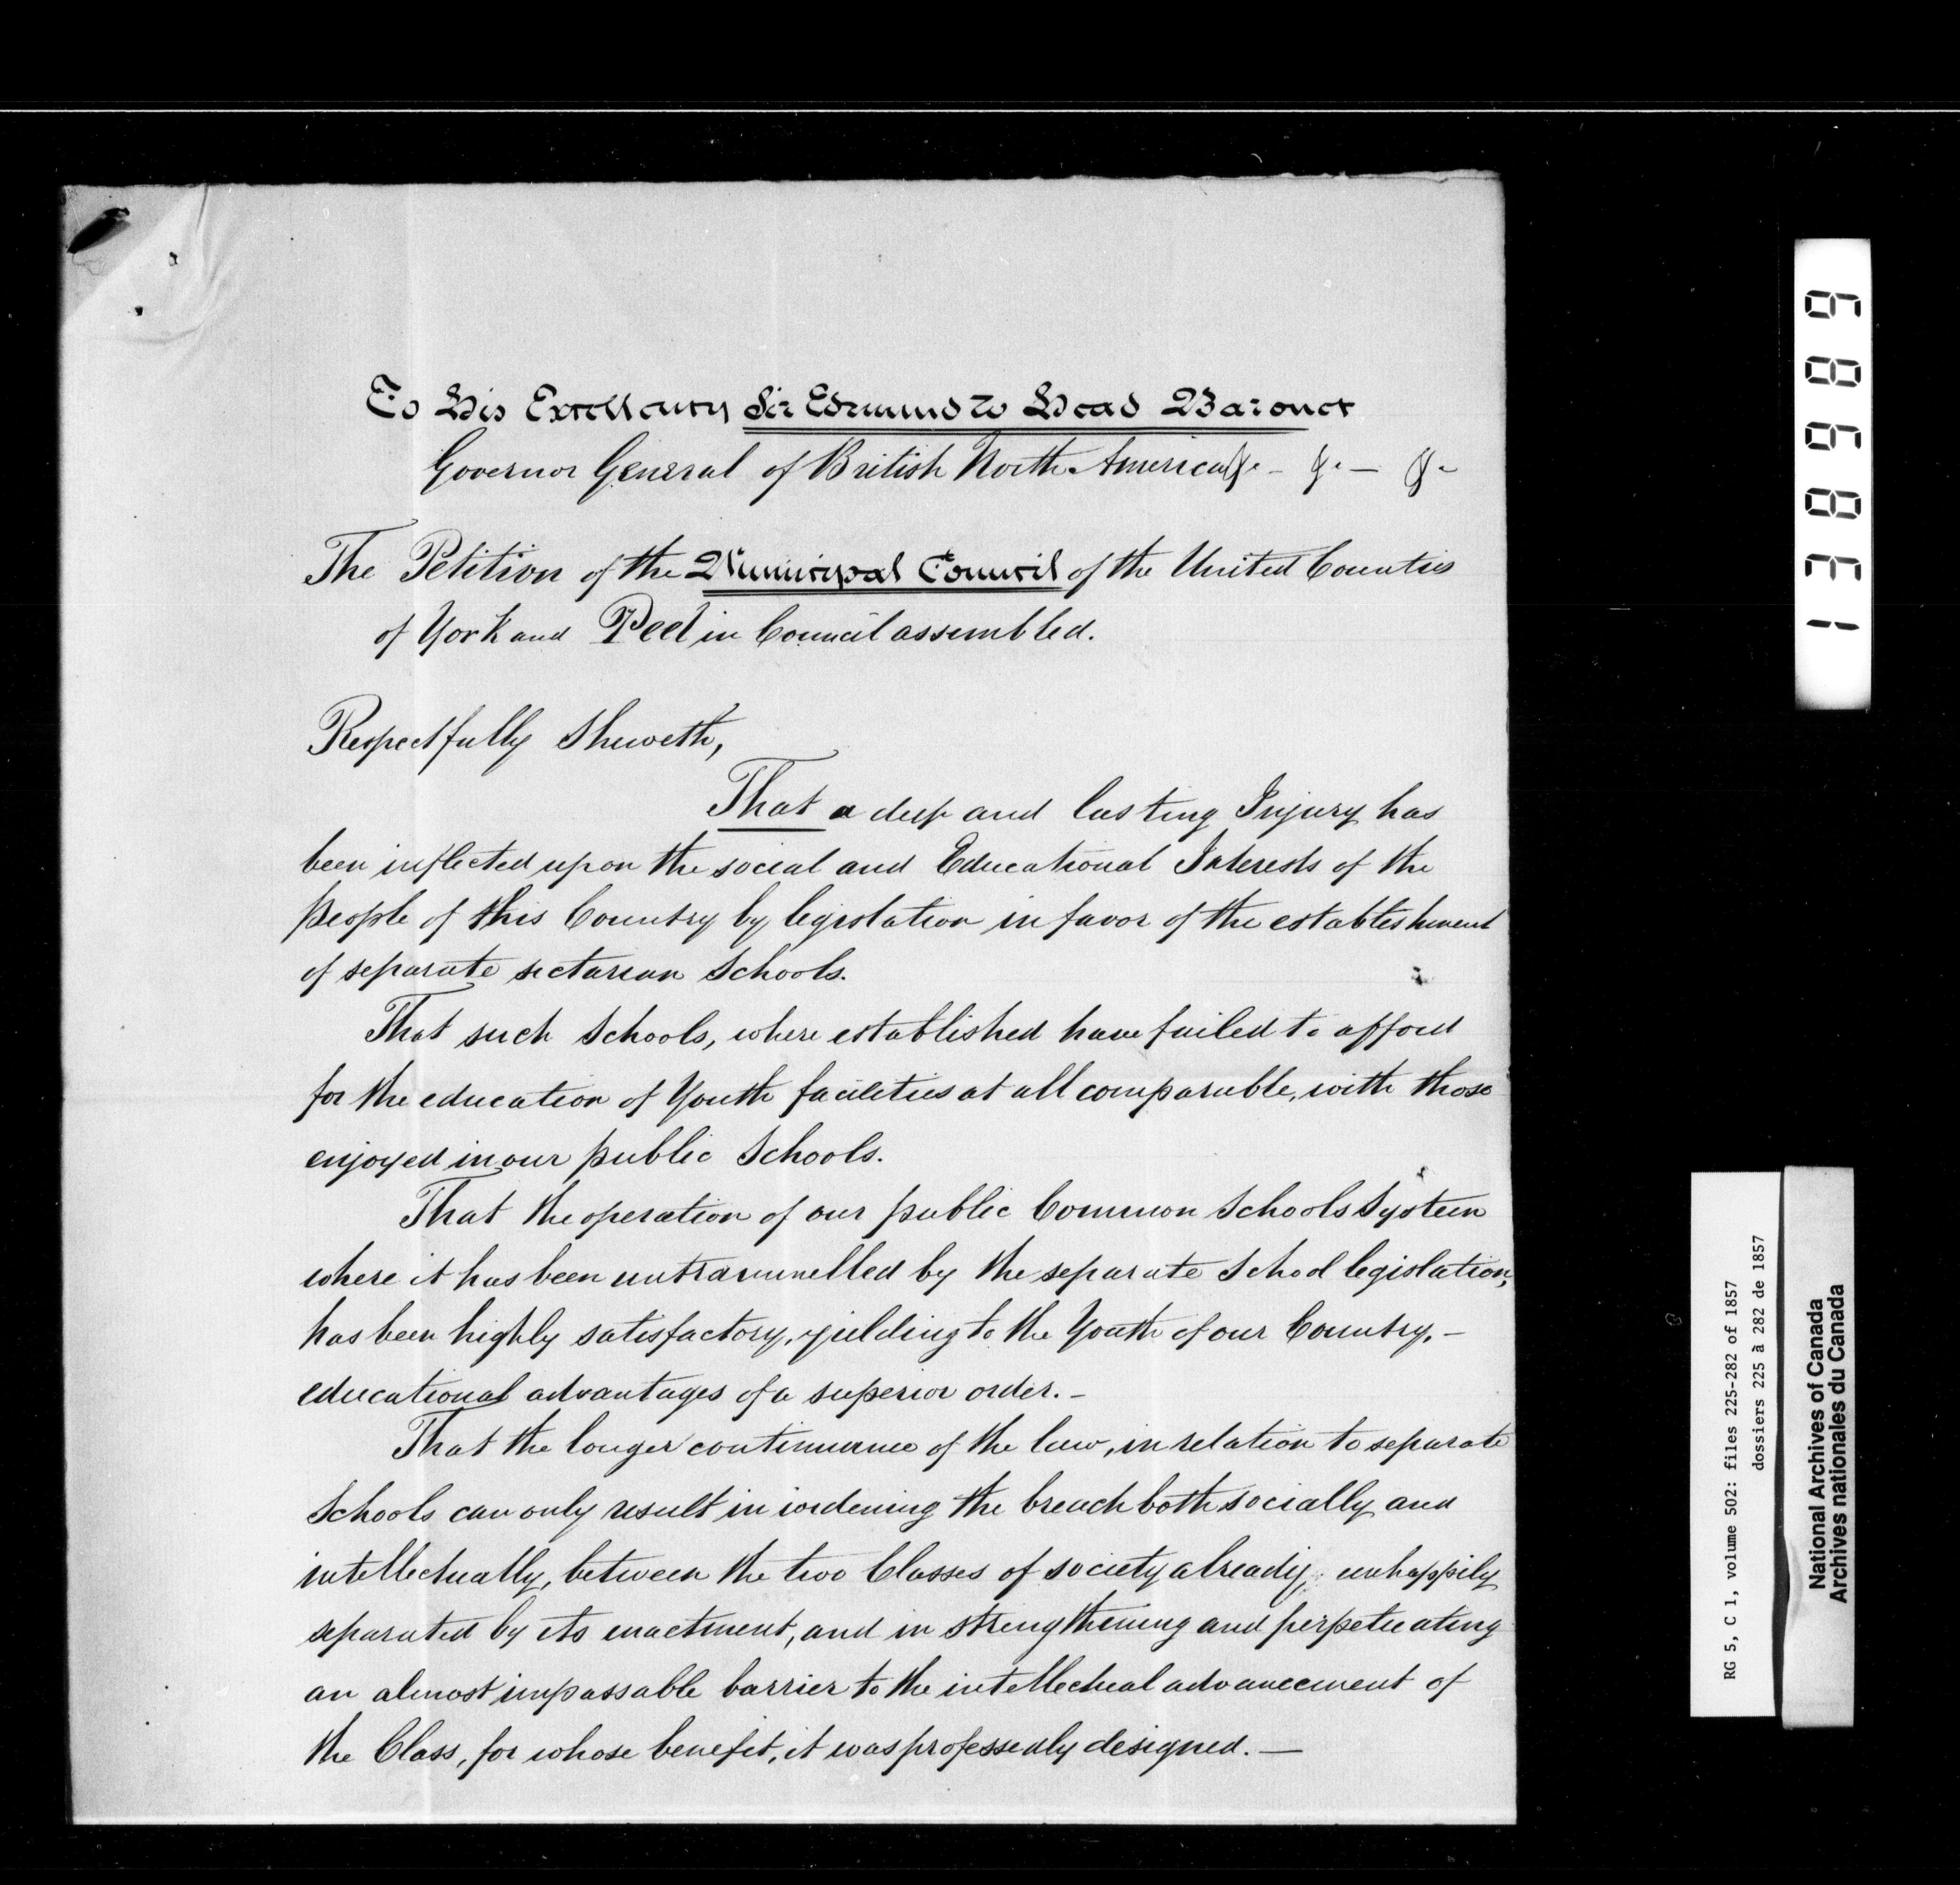 To His Excellency Sir Edmund W Head Baronet
Governor General of British North America &c - &c - &c
The Petition of the Municipal Council of the United Counties
of York and Peel in Council assembled.
Respectfully Sheweth,
That a deep and lasting Injury has
been inflected upon the social and Educational Interests of the
people of this Country by legislation in favor of the establishment
of separate sectarian Schools.
That such Schools, where established have failed to afford
for the education of Youth facilities at all comparable, with those
enjoyed in our public Schools.
That the operation of our public Common Schools System
where it has been untrammelled by the separate School legislation,
has been highly satisfactory, yielding to the Youth of our Country, -
educational advantages of a superior order. -
That the longer continuance of the law, in relation to separate
Schools can only result in widening the breach both socially and
intellectually, between the two Classes of society already, unhappily
separated by its enactment, and in strengthening and perpetuating
an almost impassable barrier to the intellectual advancement of
the Class, for whose benefit, it was professedly designed. —
138989
RG 5, C 1, volume 502: files 225-282 of 1857
dossiers 225 à 282 de 1857
National Archives of Canada
Archives nationales du Canada